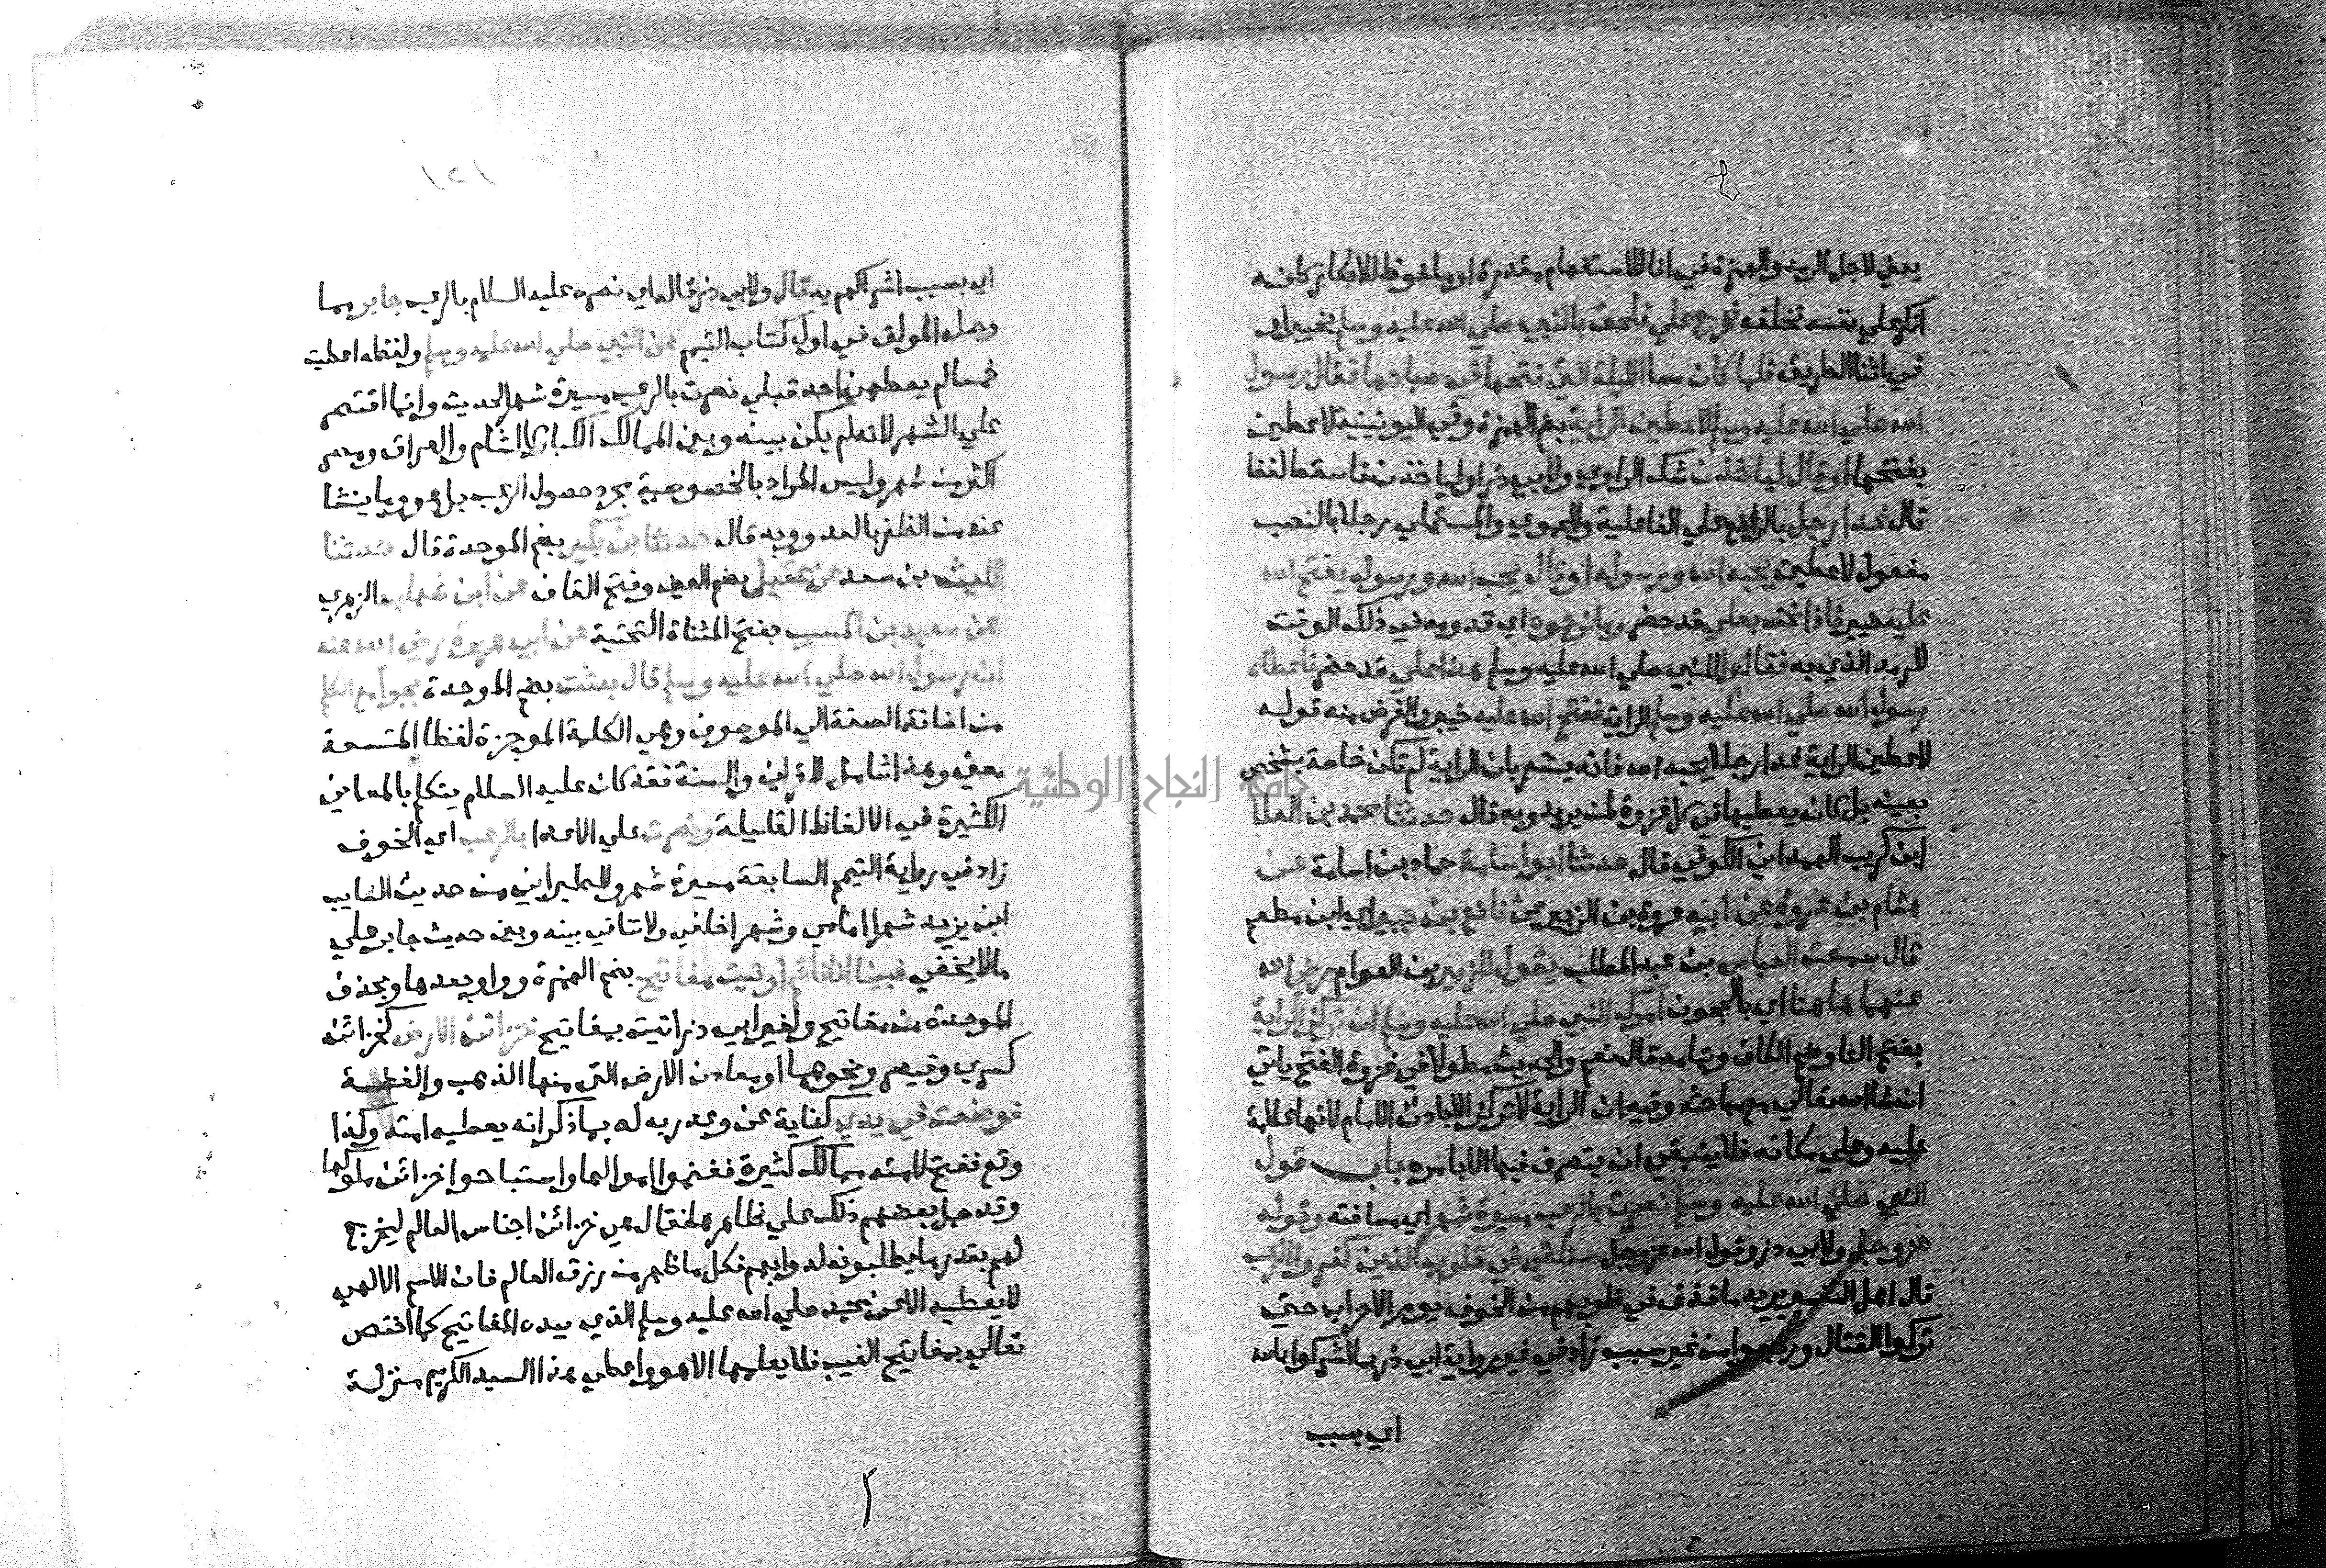 ٤
يعني لاجل الرمد والهمزة في انا للاستفهام مقدرة او ملفوظ للانكار كانه
انكر علي نفسه تخلفه فخرج علي فلحق بالنبي صلي الله عليه وسلم بخيبر او
في اثنا الطريق فلما كان مسا الليلة التي فتحها في صباحها فقال رسول
الله صلي الله عليه وسلم لاعطين الراية بضم الهمزة وفي اليونينية لاعطين
بفتحها او قال لياخذن شك الراوي ولابي ذر او لياخذن فاسقط لفظ
قال غدا رجل بالرفع علي الفاعلية وللحموي والمستملي رجلا بالنصب
مفعول لاعطين يحبه الله ورسوله او قال يحب الله ورسوله يفتح الله
عليه خيبر فاذا نحن بعلي قد حضر وما نرجوه اي قدومه في ذلك الوقت
للرمد الذي به فقالوا للنبي صلي الله عليه وسلم هذا علي قد حضر فاعطاه
رسول الله صلي الله عليه وسلم الراية ففتح الله عليه خيبر والغرض منه قوله
لاعطين الراية غدا رجلا يحبه الله فانه يشعر بان الراية لم تكن خاصة بشخص
بعينه بل كان يعطيها في كل غزوة لمن يريد وبه قال حدثنا محمد بن العلا
ابن كريب الهمداني الكوفي قال حدثنا ابو اسامة حماد بن اسامة عن
هشام بن عروة عن ابيه عروة بن الزبير عن نافع بن جبير اي ابن مطعم
قال سمعت العباس بن عبد المطلب يقول للزبير بن العوام رضي الله
عنهما هاهنا اي بالحجون امرك النبي صلي الله عليه وسلم ان تركز الراية
بفتح التا وضم الكاف وتمامه قال نعم والحديث مطولا في غزوة الفتح ياتي
ان شا الله تعالي مع مباحثه وفيه ان الراية لا تركز الا باذن الامام لانها علامة
عليه وعلي مكانه فلا ينبغي ان يتصرف فيها الا بامره باب قول
النبي صلي الله عليه وسلم نصرت بالرعب مسيرة شهر اي مسافته وقوله
عز وجل ولابي ذر وقول الله عز وجل سنلقي في قلوب الذين كفروا الرعب
قال اهل التفسير يريد ما قذف في قلوبهم من الخوف يوم الاحزاب حتي
تركوا القتال ورجعوا من غير سبب زاد في غير رواية ابي ذر بما اشركوا بالله
اي بسبب
١٢١
اي بسبب اشراكهم به قال ولابي ذر قاله اي نصره عليه السلام بالرعب جابر مما
وصله المولف في اول كتاب التيمم عن النبي صلي الله عليه وسلم ولفظه اعطيت
خمسا لم يعطهن احد قبلي نصرت بالرعب مسيرة شهر الحديث وانما اقتصر
علي الشهر لانه لم يكن بينه وبين الممالك الكبار كالشام والعراق ومصر
اكثر من شهر وليس المراد بالخصوصية مجرد حصول الرعب بل هو وما ينشا
عنه من الظفر بالعدو وبه قال حدثنا بن بكير بضم الموحدة قال حدثنا
الليث بن سعد عن عقيل بضم العين وفتح القاف عن ابن شهاب الزهري
عن سعيد بن المسيب بفتح المثناة التحتية عن ابي هريرة رضي الله عنه
ان رسول الله صلي الله عليه وسلم قال بعثت بضم الموحدة بجوامع الكلم
من اضافة الصفة الي الموصوف وهي الكلمة الموجزة لفظا المتسعة
معني وهذا شامل للقران والسنة فقد كان عليه السلام يتكلم بالمعاني
الكثيرة في الالفاظ القليلة ونصرت علي الاعدا بالرعب اي الخوف
زاد في رواية التيمم السابقة مسيرة شهر وللطبراني من حديث السايب
ابن يزيد شهرا امامي وشهرا خلفي ولا تنافي بينه وبين حديث جابر علي
ما لا يخفي فبينا انا نائم اوتيت مفاتيح بضم الهمزة وواو بعدها وبحذف
الموحدة من مفاتيح ولغير ابي ذر اتيت بمفاتيح خزائن الارض كخزائن
كسري وقيصر ونحوهما او معادن الارض التي منها الذهب والفضة
فوضعت في يدي كفاية عن وعد ربه له بما ذكر انه يعطيه امته وكذا
وقع ففتح لامته ممالك كثيرة فغنموا اموالها واستباحوا خزائن ملوكها
وقد حمل بعضهم ذلك علي ظاهره فقال هي خزائن اجناس العالم ليخرج
لهم بقدر ما يطلبونه لذواتهم فكل ما ظهر من رزق العالم فان الاسم الالهي
لا يعطيه الا عن محمد صلي الله عليه وسلم الذي بيده المفاتيح كما اختص
تعالي بمفاتيح الغيب فلا يعلمها الا هو واعطي هذا السيد الكريم منزلة
جامعة النجاح الوطنية